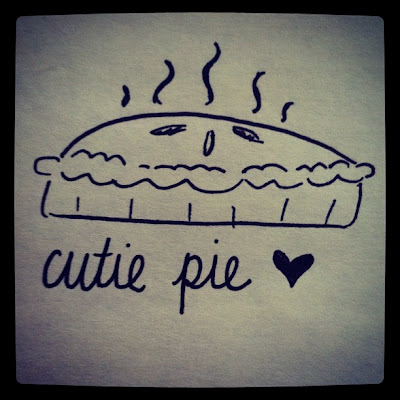 cutie pie ♥